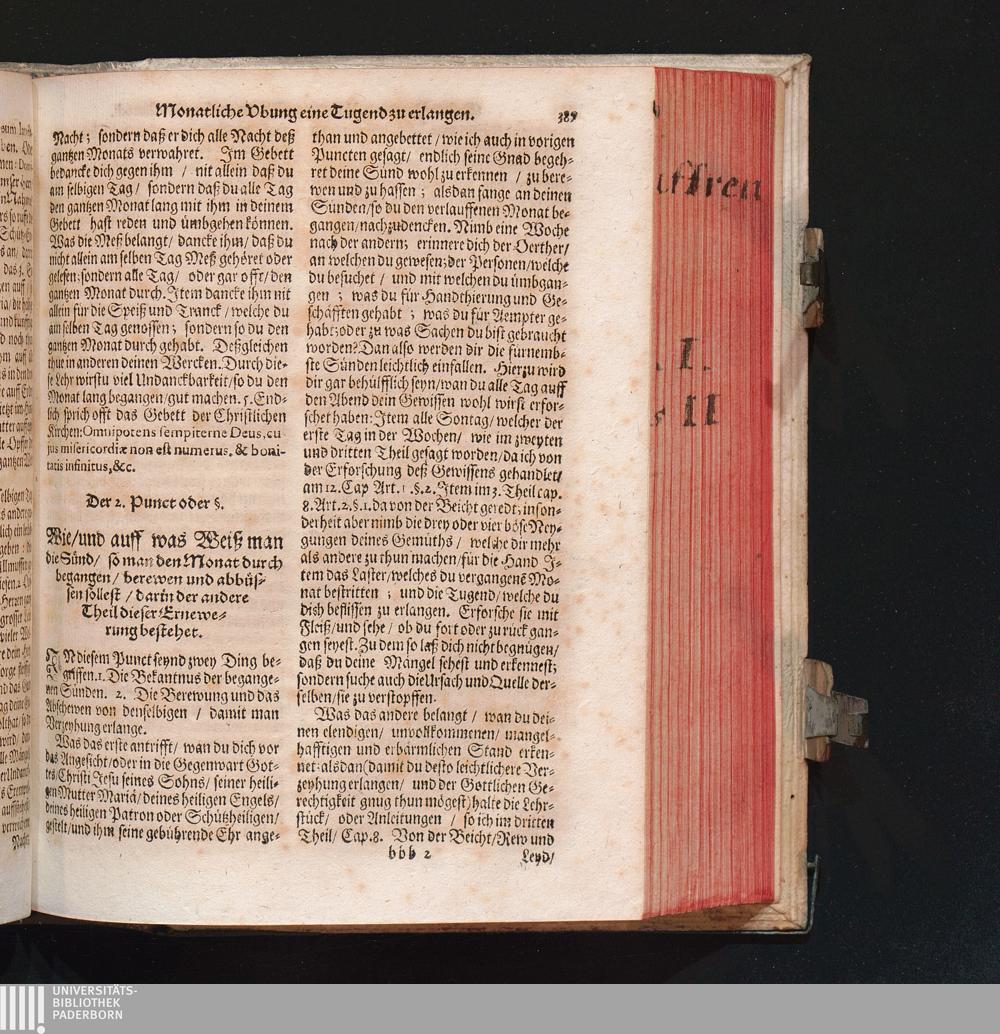 Monatliche Vbung eine Tugend zu erlangen. 387
Nacht; sondern daß er dich alle Nacht deß
gantzen Monats verwahret. Im Gebett
bedancke dich gegen ihm / nit allein daß du
am selbigen Tag / sondern daß du alle Tag
den gantzen Monat lang mit ihm in deinem
Gebett hast reden und ümbgehen können.
Was die Meß belangt/ dancke ihm/ daß du
nicht allein am selben Tag Meß gehöret oder
gelesen; sondern alle Tag/ oder gar offt/ den
gantzen Monat durch. Item dancke ihm nit
allein für die Speiß und Tranck / welche du
am selben Tag genossen; sondern so du den
gantzen Monat durch gehabt. Deßgleichen
thue in anderen deinen Wercken. Durch die-
se Lehr wirstu viel Undanckbarkeit/ so du den
Monat lang begangen/ gut machen. 5. End-
lich sprich offt das Gebett der Christlichen
Kirchen: Omnipotens sempiterne Deus, cu-
jus misericordiæ non est numerus, & boni-
tatis infinitus, &c.
Der 2. Punct oder §.
Wie/ und auff was Weiß man
die Sünd / so man den Monat durch
begangen / berewen und abbüs-
sen sollest / darin der andere
Theil dieser Ernewe-
rung bestehet.
IN diesem Punct seynd zwey Ding be-
griffen. 1. Die Bekantnus der begange-
nen Sünden. 2. Die Berewung und das
Abschewen von denselbigen / damit man
Verzeyhung erlange.
Was das erste antrifft/ wan du dich vor
das Angesicht/ oder in die Gegenwart Got-
tes/ Christi Jesu seines Sohns/ seiner heili-
gen Mutter Mariä/ deines heiligen Engels/
deines heiligen Patron oder Schützheiligen/
gestelt/ und ihm seine gebührende Ehr ange-
than und angebettet / wie ich auch in vorigen
Puncten gesagt/ endlich seine Gnad begeh-
ret deine Sünd wohl zu erkennen / zu bere-
wen und zu hassen; alsdan fange an deinen
Sünden/ so du den verlauffenen Monat be-
gangen/ nachzudencken. Nimb eine Woche
nach der andern; erinnere dich der Oerther/
an welchen du gewesen; der Personen/ welche
du besuchet / und mit welchen du ümbgan-
gen; was du für Handthierung und Ge-
schäfften gehabt; was du für Aempter ge-
habt; oder zu was Sachen du bist gebraucht
worden? Dan also werden dir die fürnemb-
ste Sünden leichtlich einfallen. Hierzu wird
dir gar behülfflich seyn/ wan du alle Tag auff
den Abend dein Gewissen wohl wirst erfor-
schet haben: Item alle Sontag/ welcher der
erste Tag in der Wochen/ wie im zweyten
und dritten Theil gesagt worden/ da ich von
der Erforschung deß Gewissens gehandlet/
am 12. Cap Art. 1. §. 2. Item im 3. Theil cap.
8. Art. 2. §. 1. da von der Beicht geredt; inson-
derheit aber nimb die drey oder vier böse Ney-
gungen deines Gemüths / welche dir mehr
als andere zu thun machen/ für die Hand. I-
tem das Laster/ welches du vergangenē Mo-
nat bestritten; und die Tugend/ welche du
dich beflissen zu erlangen. Erforsche sie mit
Fleiß/ und sehe / ob du fort oder zu rück gan-
gen seyest. Zu dem so laß dich nicht begnügen/
daß du deine Mängel sehest und erkennest;
sondern suche auch die Ursach und Quelle der-
selben/ sie zu verstopffen.
Was das andere belangt / wan du dei-
nen elendigen / unvollkommenen / mangel-
hafftigen und erbärmlichen Stand erken-
net: alsdan (damit du desto leichtlichere Ver-
zeyhung erlangen / und der Göttlichen Ge-
rechtigkeit gnug thun mögest) halte die Lehr-
stück/ oder Anleitungen / so ich im dritten
Theil/ Cap. 8. Von der Beicht/ Rew und
bbb 2 Leyd/
UNIVERSITÄTS-
BIBLIOTHEK
PADERBORN